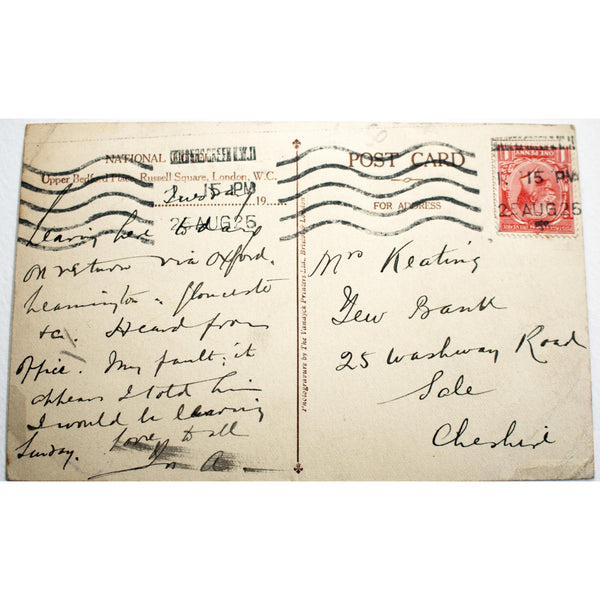 NATIONAL
Upper Bedford Place, Russell Square, London, W.C.
Tuesday 19
15 PM
25 AUG 25
Leaving here today
on return via Oxford,
Leamington, Gloucester
&c. Heard from
Office. My fault; it
appears I told him
I would be leaving
Sunday. Love to all
A
Photogravure by The Vandyck Printers Ltd., Bristol & London
POST CARD
FOR ADDRESS
15 PM
25 AUG 25
Mrs Keating
Yew Bank
25 Washway Road
Sale
Cheshire